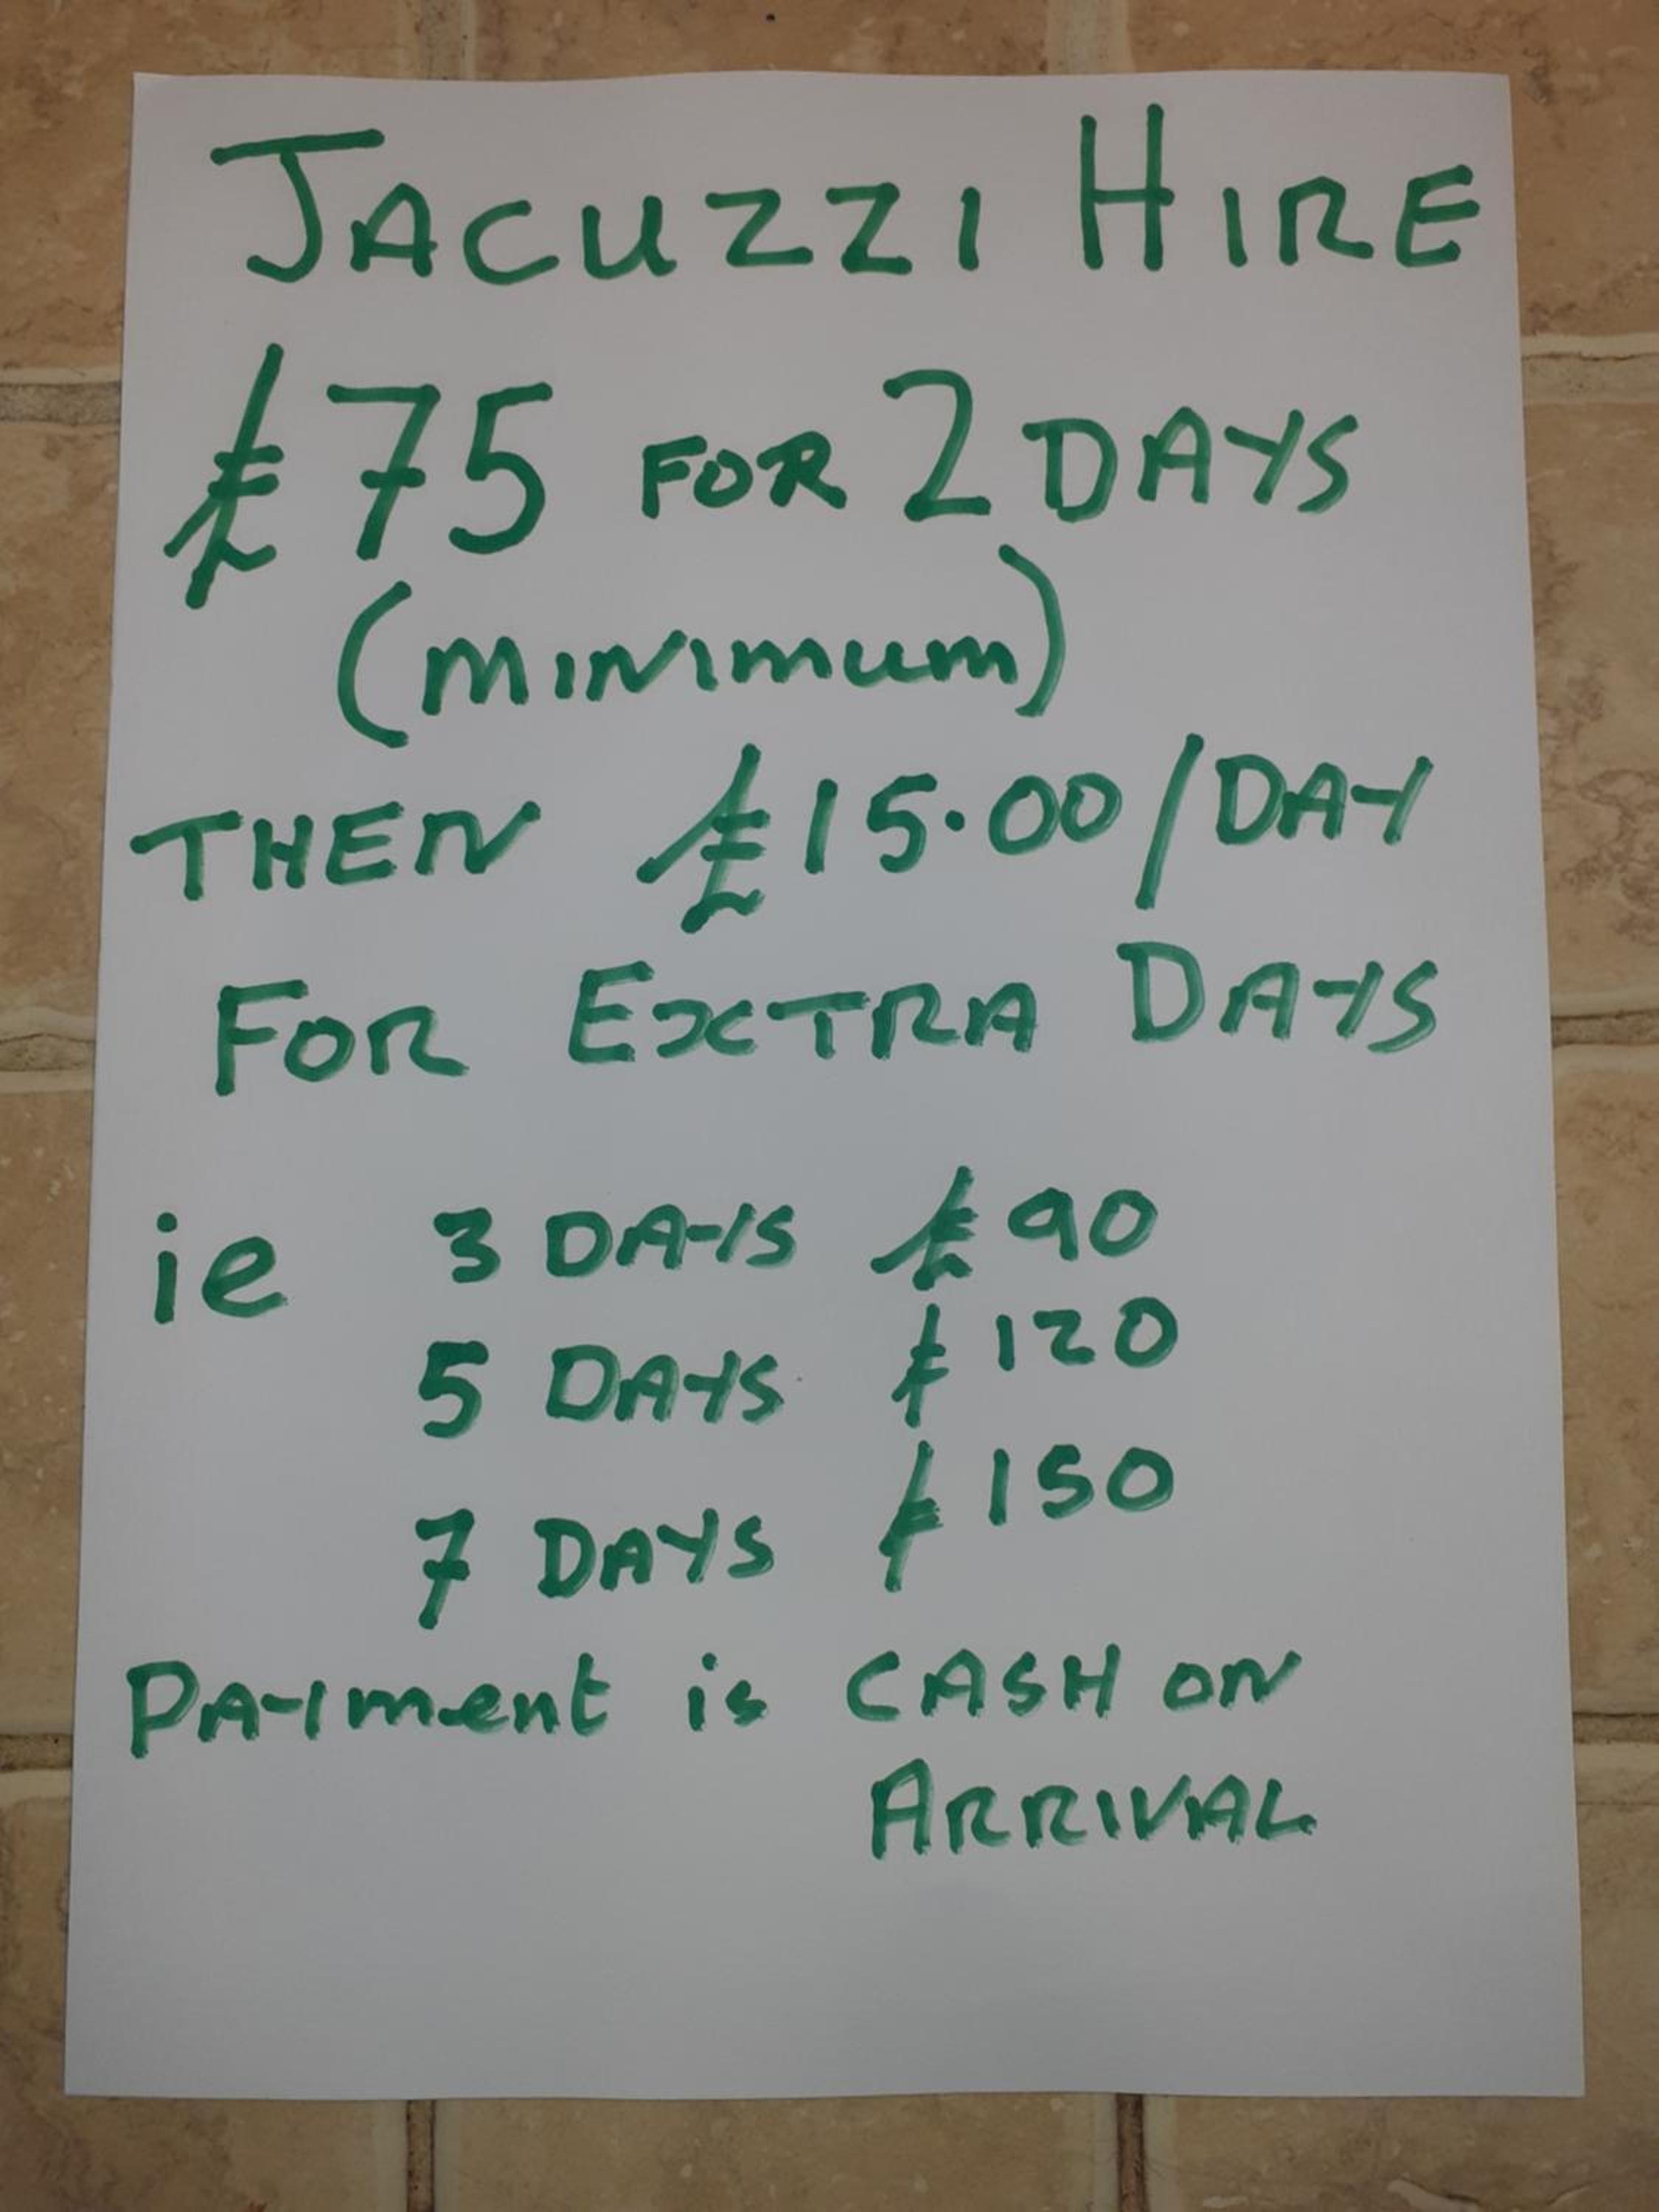 JACUZZI HIRE
£75 FOR 2 DAYS
(MINIMUM)
THEN £15.00/DAY
FOR EXTRA DAYS
ie 3 DAYS £90
5 DAYS £120
7 DAYS £150
PAYment is CASH ON
ARRIVAL